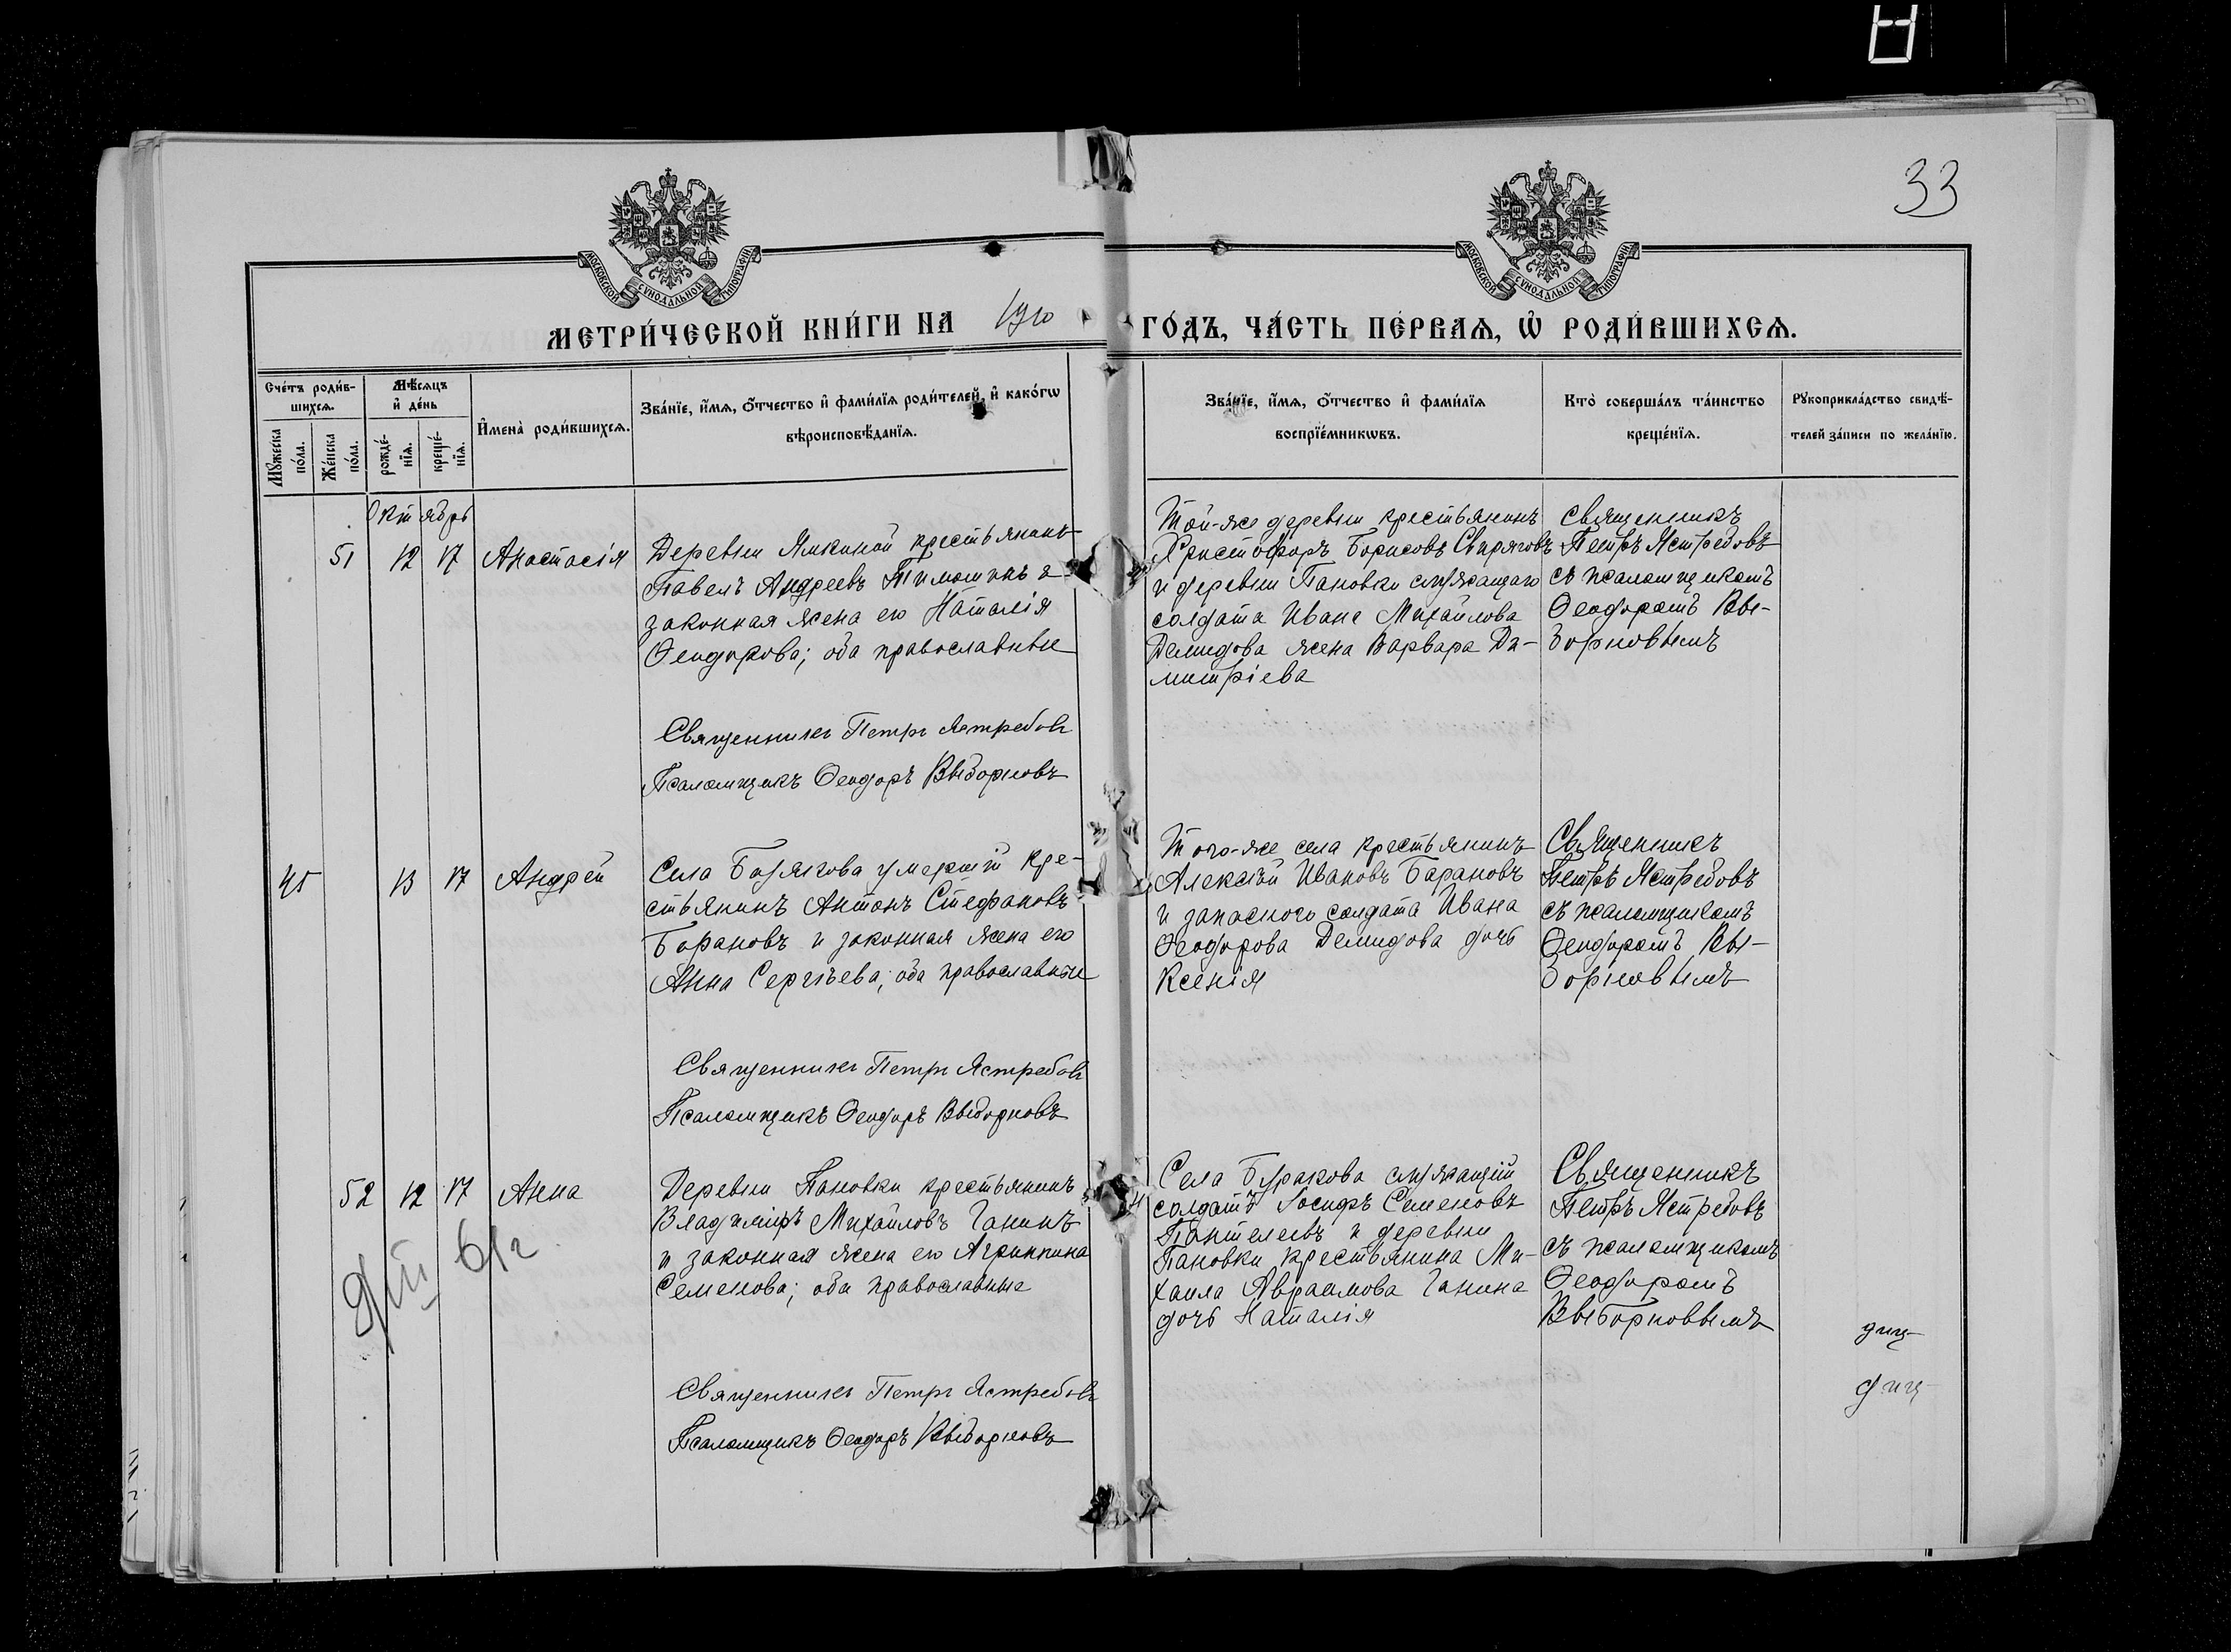 33
МОСКОВСКОЙ СѴНОДАЛЬНОЙ ТИПОГРАФІИ
МОСКОВСКОЙ СѴНОДАЛЬНОЙ ТИПОГРАФІИ
МЕТРИ́ЧЕСКОЙ КНИ́ГИ НА 1910 ГО́ДЪ, ЧА́СТЬ ПЕ́РВАѦ, Ѡ РОДИ́ВШИХСѦ.
Сче́тъ роди́в-
шихсѧ.
Мꙋ́жеска по́ла.
Же́нска по́ла.
Мѣ́сѧцъ
и де́нь
рожде́-
нїѧ.
креще́-
нїѧ.
Имена̀ роди́вшихсѧ.
Зва́нїе, и́мѧ, о́тчество и фами́лїѧ роди́телей, и како́гѡ
вѣроисповѣ́данїѧ.
Зва́нїе, и́мѧ, о́тчество и фами́лїѧ
воспрїе́мникѡвъ.
Кто̀ соверша́лъ та́инство
креще́нїѧ.
Рꙋкоприкла́дство свидѣ́-
телей за́писи по жела́нїю.
Октябрь
51 12 17 Анастасія
Деревни Якиной крестьянинъ
Павелъ Андреевъ Тимошинъ и
законная жена его Наталія
Ѳеодорова; оба православные
Священникъ Петръ Ястребовъ
Псаломщикъ Ѳеодоръ Выборновъ
Той-же деревни крестьянинъ
Христофоръ Борисовъ
и деревни Пановки служащаго
солдата Ивана Михайлова
Демидова жена Варвара Ди-
митріева
Священникъ
Петръ Ястребовъ
съ псаломщикомъ
Ѳеодоромъ Вы-
борновымъ
45 13 17 Андрей
Села Буракова умершій кре-
стьянинъ Антонъ Стефановъ
Барановъ и законная жена его
Анна Сергѣева; оба православные
Священникъ Петръ Ястребовъ
Псаломщикъ Ѳеодоръ Выборновъ
Того-же села крестьянинъ
Алексѣй Ивановъ Барановъ
и запасного солдата Ивана
Ѳеодорова Демидова дочь
Ксенія
Священникъ
Петръ Ястребовъ
съ псаломщикомъ
Ѳеодоромъ Вы-
борновымъ
52 12 17 Анна
61г
Деревни Пановки крестьянинъ
Владиміръ Михайловъ Ганинъ
и законная жена его Агриппина
Семенова; оба православные
Священникъ Петръ Ястребовъ
Псаломщикъ Ѳеодоръ Выборновъ
Села Буракова служащій
солдатъ Іосифъ Семеновъ
Пантелеевъ и деревни
Пановки крестьянина Ми-
хаила Авраамова Ганина
дочь Наталія
Священникъ
Петръ Ястребовъ
съ псаломщикомъ
Ѳеодоромъ
Выборновымъ